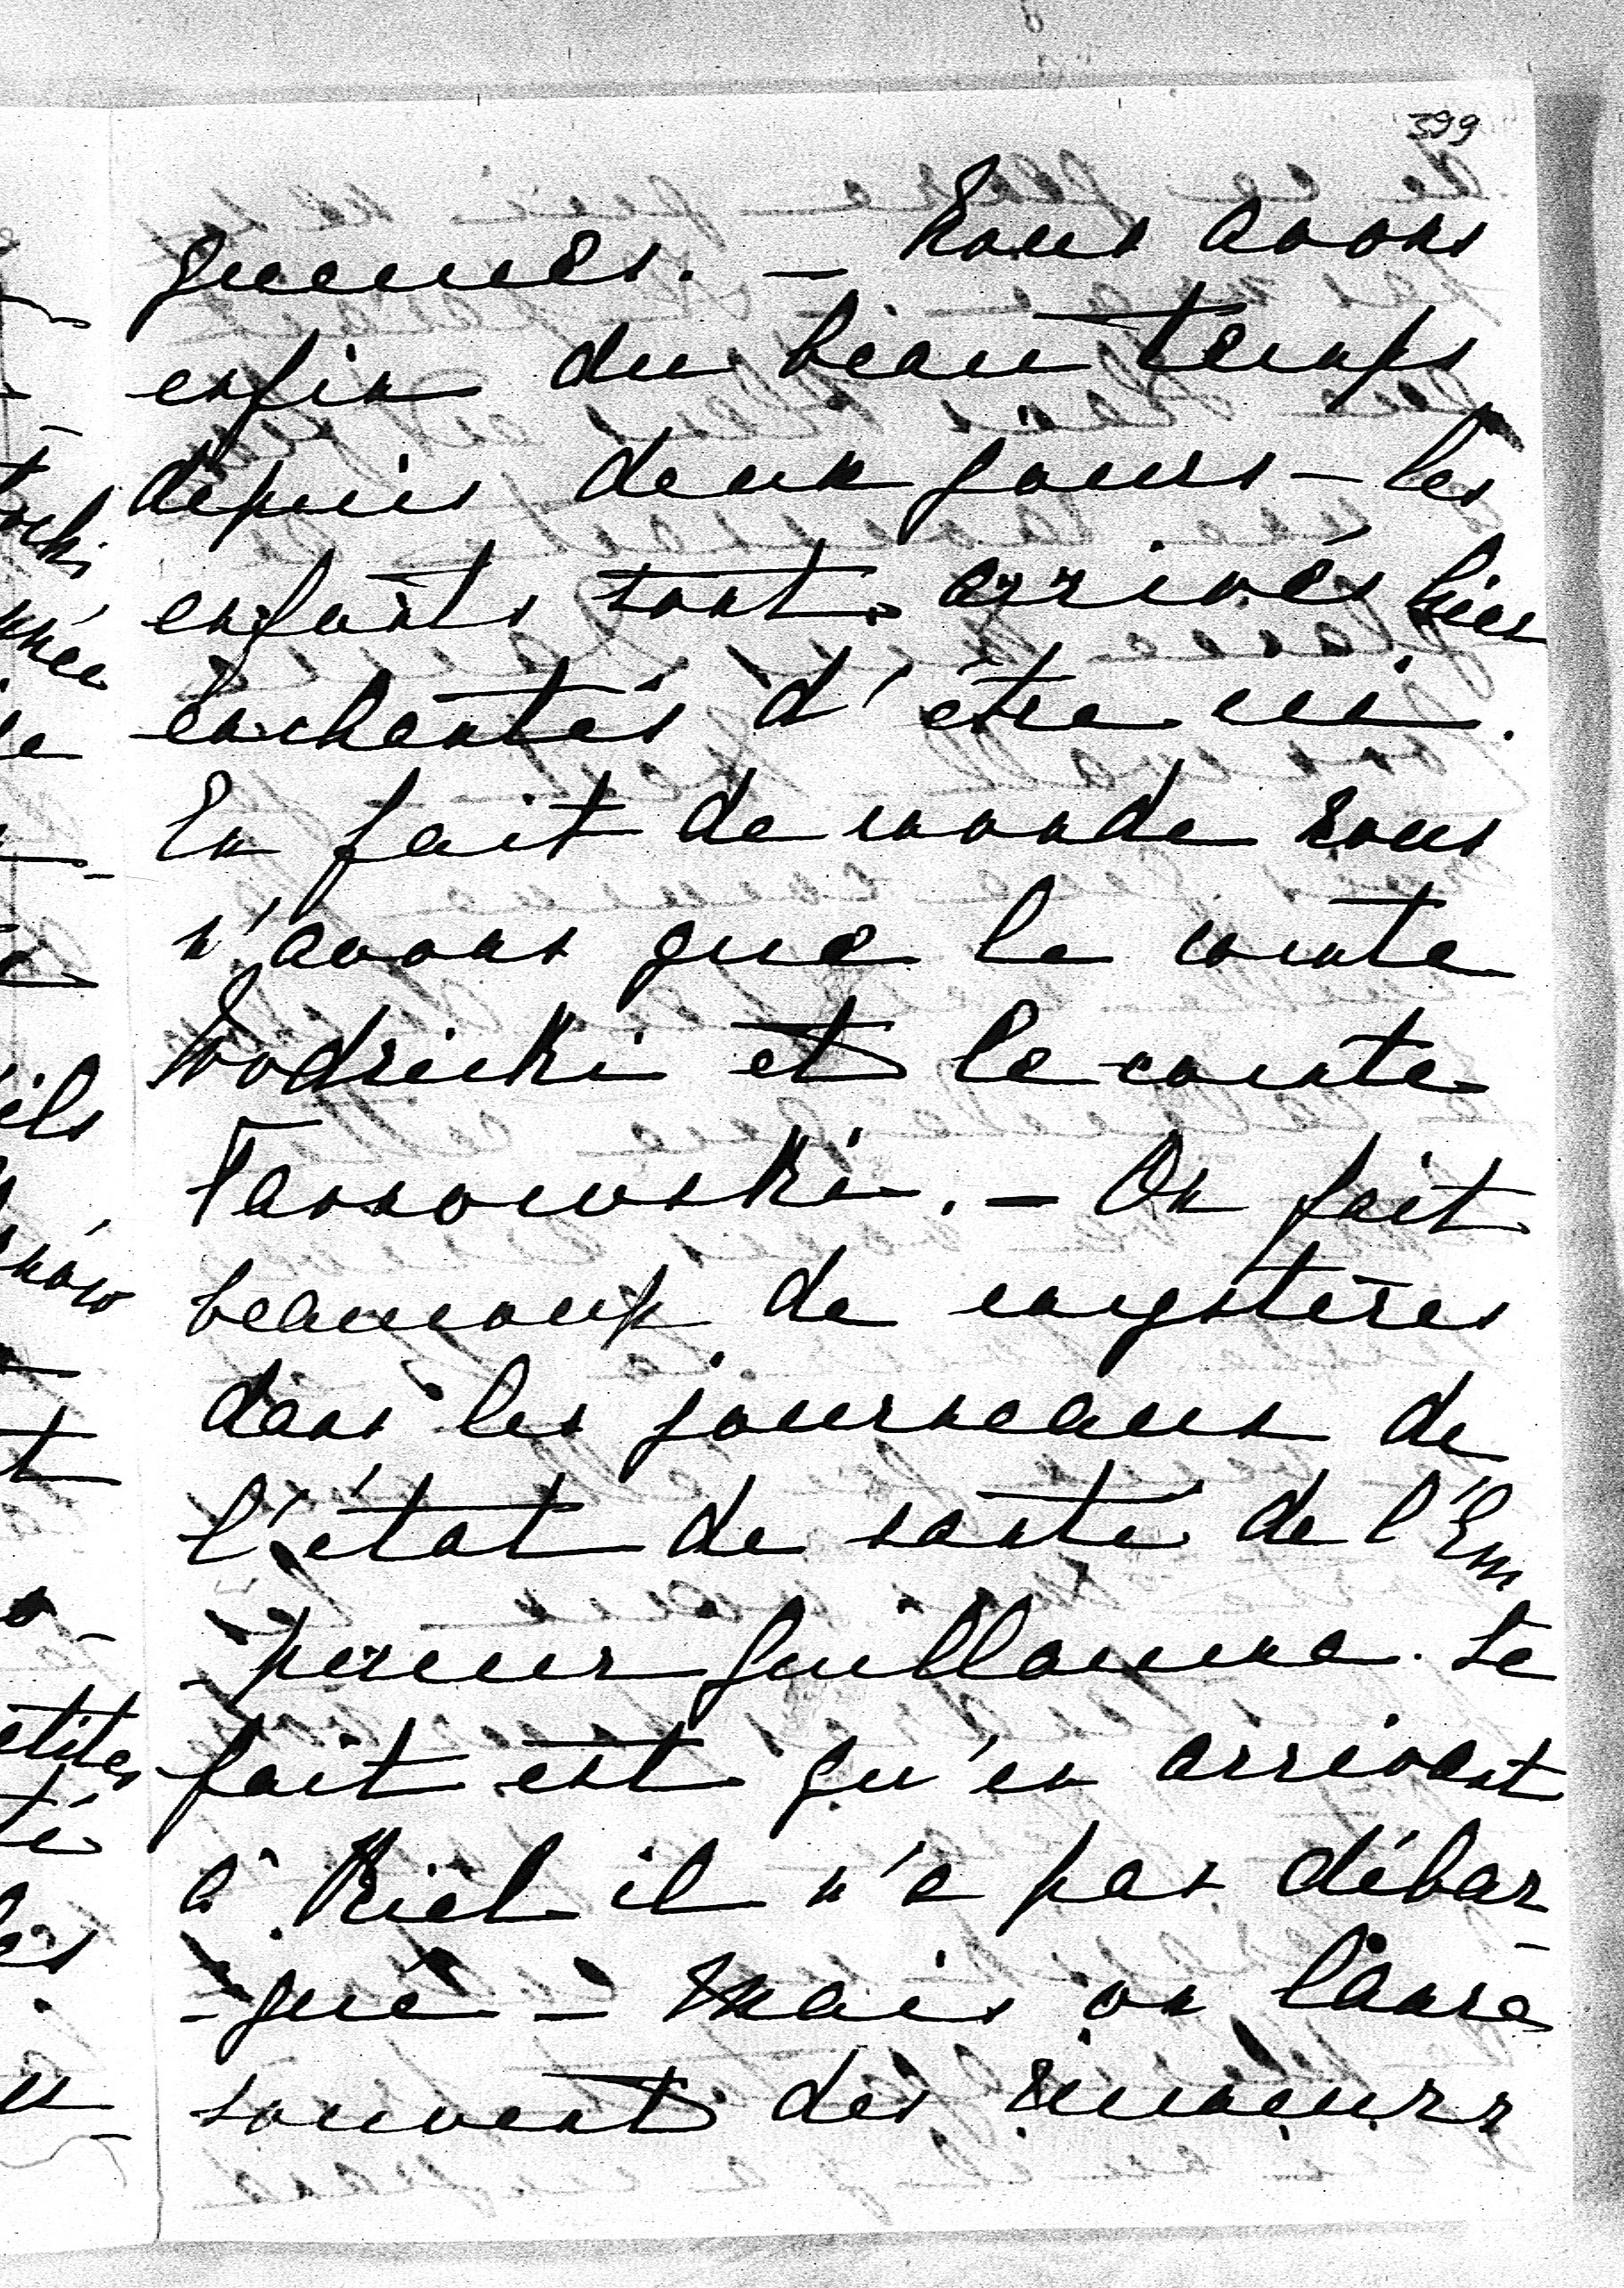 399
guemes. — Nous avons
enfin du beau temps
depuis deux jours — les
enfants sont arrivés hier
enchantés d'être ici.
En fait de monde nous
n'avons que le comte
Wodzicki et le comte
Tarnowski. — On fait
beaucoup de mystères
dans les journaux de
l'état de santé de l'Em
-pereur Guillaume. Le
fait est qu'en arrivant
à Kiel il n'a pas débar
-qué — mais on lance
souvent des rumeurs